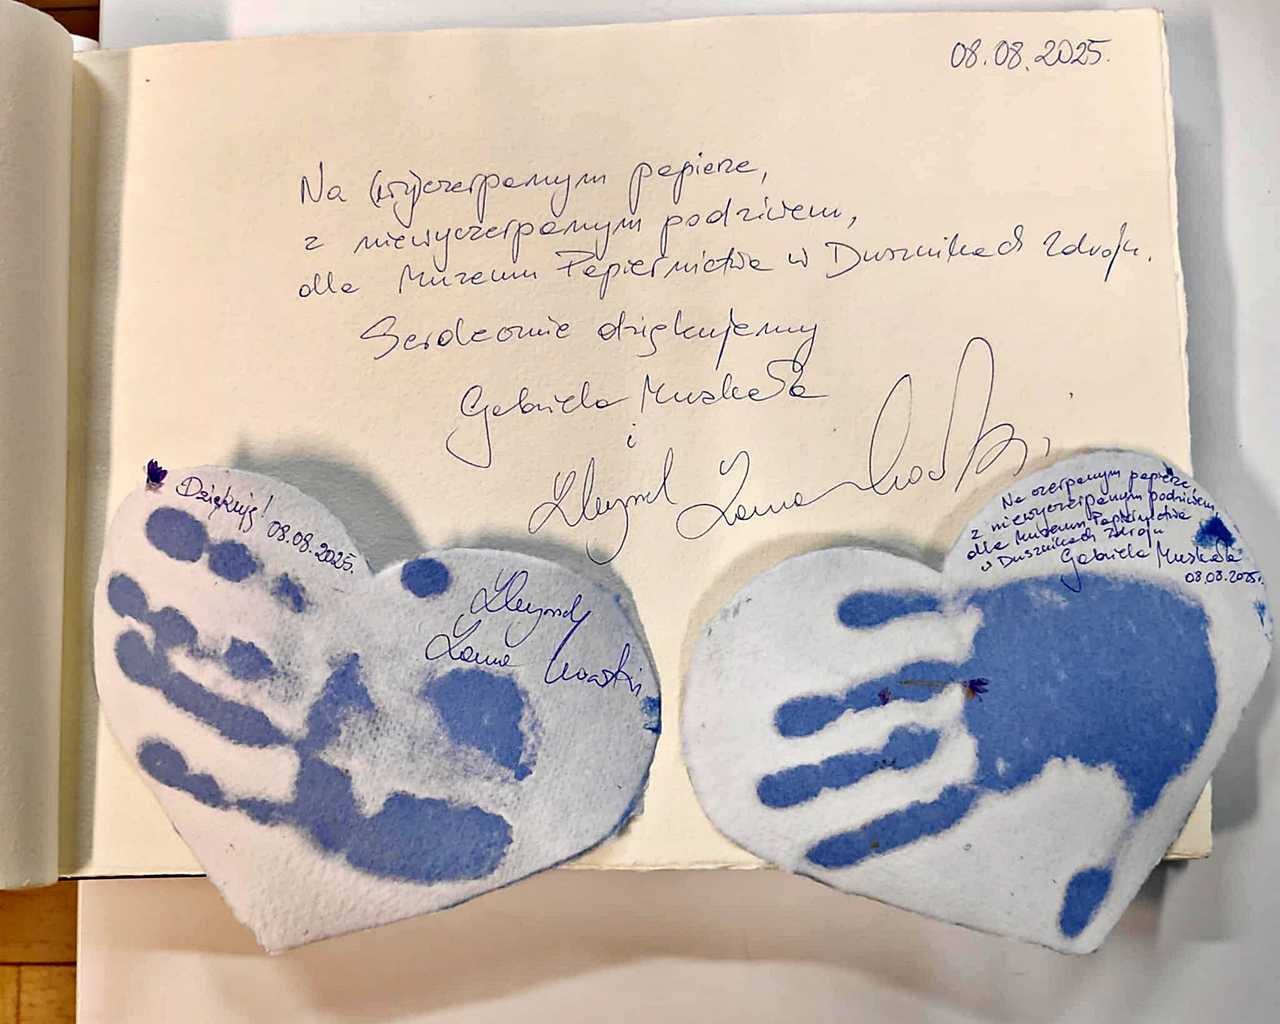 08.08.2025.
Na (wy)czerpanym papierze,
z niewyczerpanym podziwem,
dla Muzeum Papiernictwa w Dusznikach Zdroju.
Serdecznie dziękujemy
Gabriela Muskała
i
Zamachowski
Dziękuję!
08.08.2025.
Zamachowski
Na czerpanym papierze,
z niewyczerpanym podziwem,
dla Muzeum Papiernictwa
w Dusznikach Zdroju
Gabriela Muskała
08.08.2025.